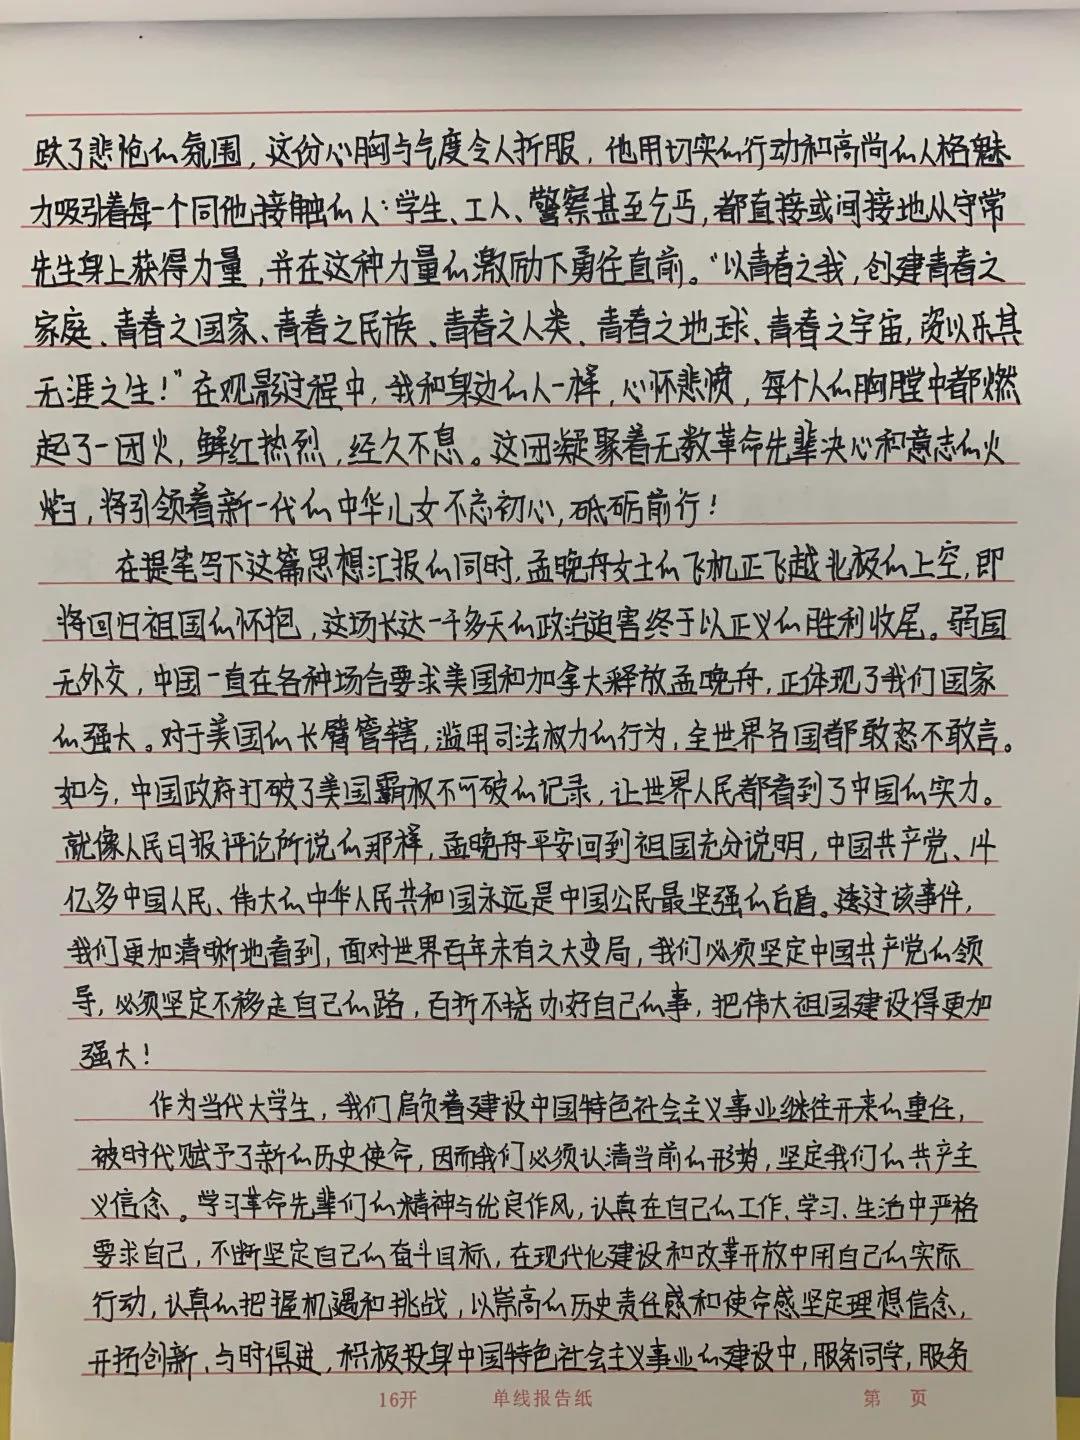 跌了悲怆的氛围，这份心胸与气度令人折服，他用切实的行动和高尚的人格魅
力吸引着每一个同他接触的人：学生、工人、警察甚至乞丐，都直接或间接地从守常
先生身上获得力量，并在这种力量的激励下勇往直前。“以青春之我，创建青春之
家庭、青春之国家、青春之民族、青春之人类、青春之地球、青春之宇宙，资以乐其
无涯之生！”在观影过程中，我和身边的人一样，心怀悲愤，每个人的胸膛中都燃
起了一团火，鲜红热烈，经久不息。这团凝聚着无数革命先辈决心和意志的火
焰，将引领着新一代的中华儿女不忘初心，砥砺前行！
在提笔写下这篇思想汇报的同时，孟晚舟女士的飞机正飞越北极的上空，即
将回归祖国的怀抱，这场长达一千多天的政治迫害终于以正义的胜利收尾。弱国
无外交，中国一直在各种场合要求美国和加拿大释放孟晚舟，正体现了我们国家
的强大。对于美国的长臂管辖，滥用司法权力的行为，全世界各国都敢怒不敢言。
如今，中国政府打破了美国霸权不可破的记录，让世界人民都看到了中国的实力。
就像人民日报评论所说的那样，孟晚舟平安回到祖国充分说明，中国共产党、14
亿多中国人民、伟大的中华人民共和国永远是中国公民最坚强的后盾。透过该事件，
我们更加清晰地看到，面对世界百年未有之大变局，我们必须坚定中国共产党的领
导，必须坚定不移走自己的路，百折不挠办好自己的事，把伟大祖国建设得更加
强大！
作为当代大学生，我们肩负着建设中国特色社会主义事业继往开来的重任，
被时代赋予了新的历史使命，因而我们必须认清当前的形势，坚定我们的共产主
义信念。学习革命先辈们的精神与优良作风，认真在自己的工作、学习、生活中严格
要求自己，不断坚定自己的奋斗目标，在现代化建设和改革开放中用自己的实际
行动，认真的把握机遇和挑战，以崇高的历史责任感和使命感坚定理想信念，
开拓创新、与时俱进，积极投身中国特色社会主义事业的建设中，服务同学，服务
16开 单线报告纸 第 页